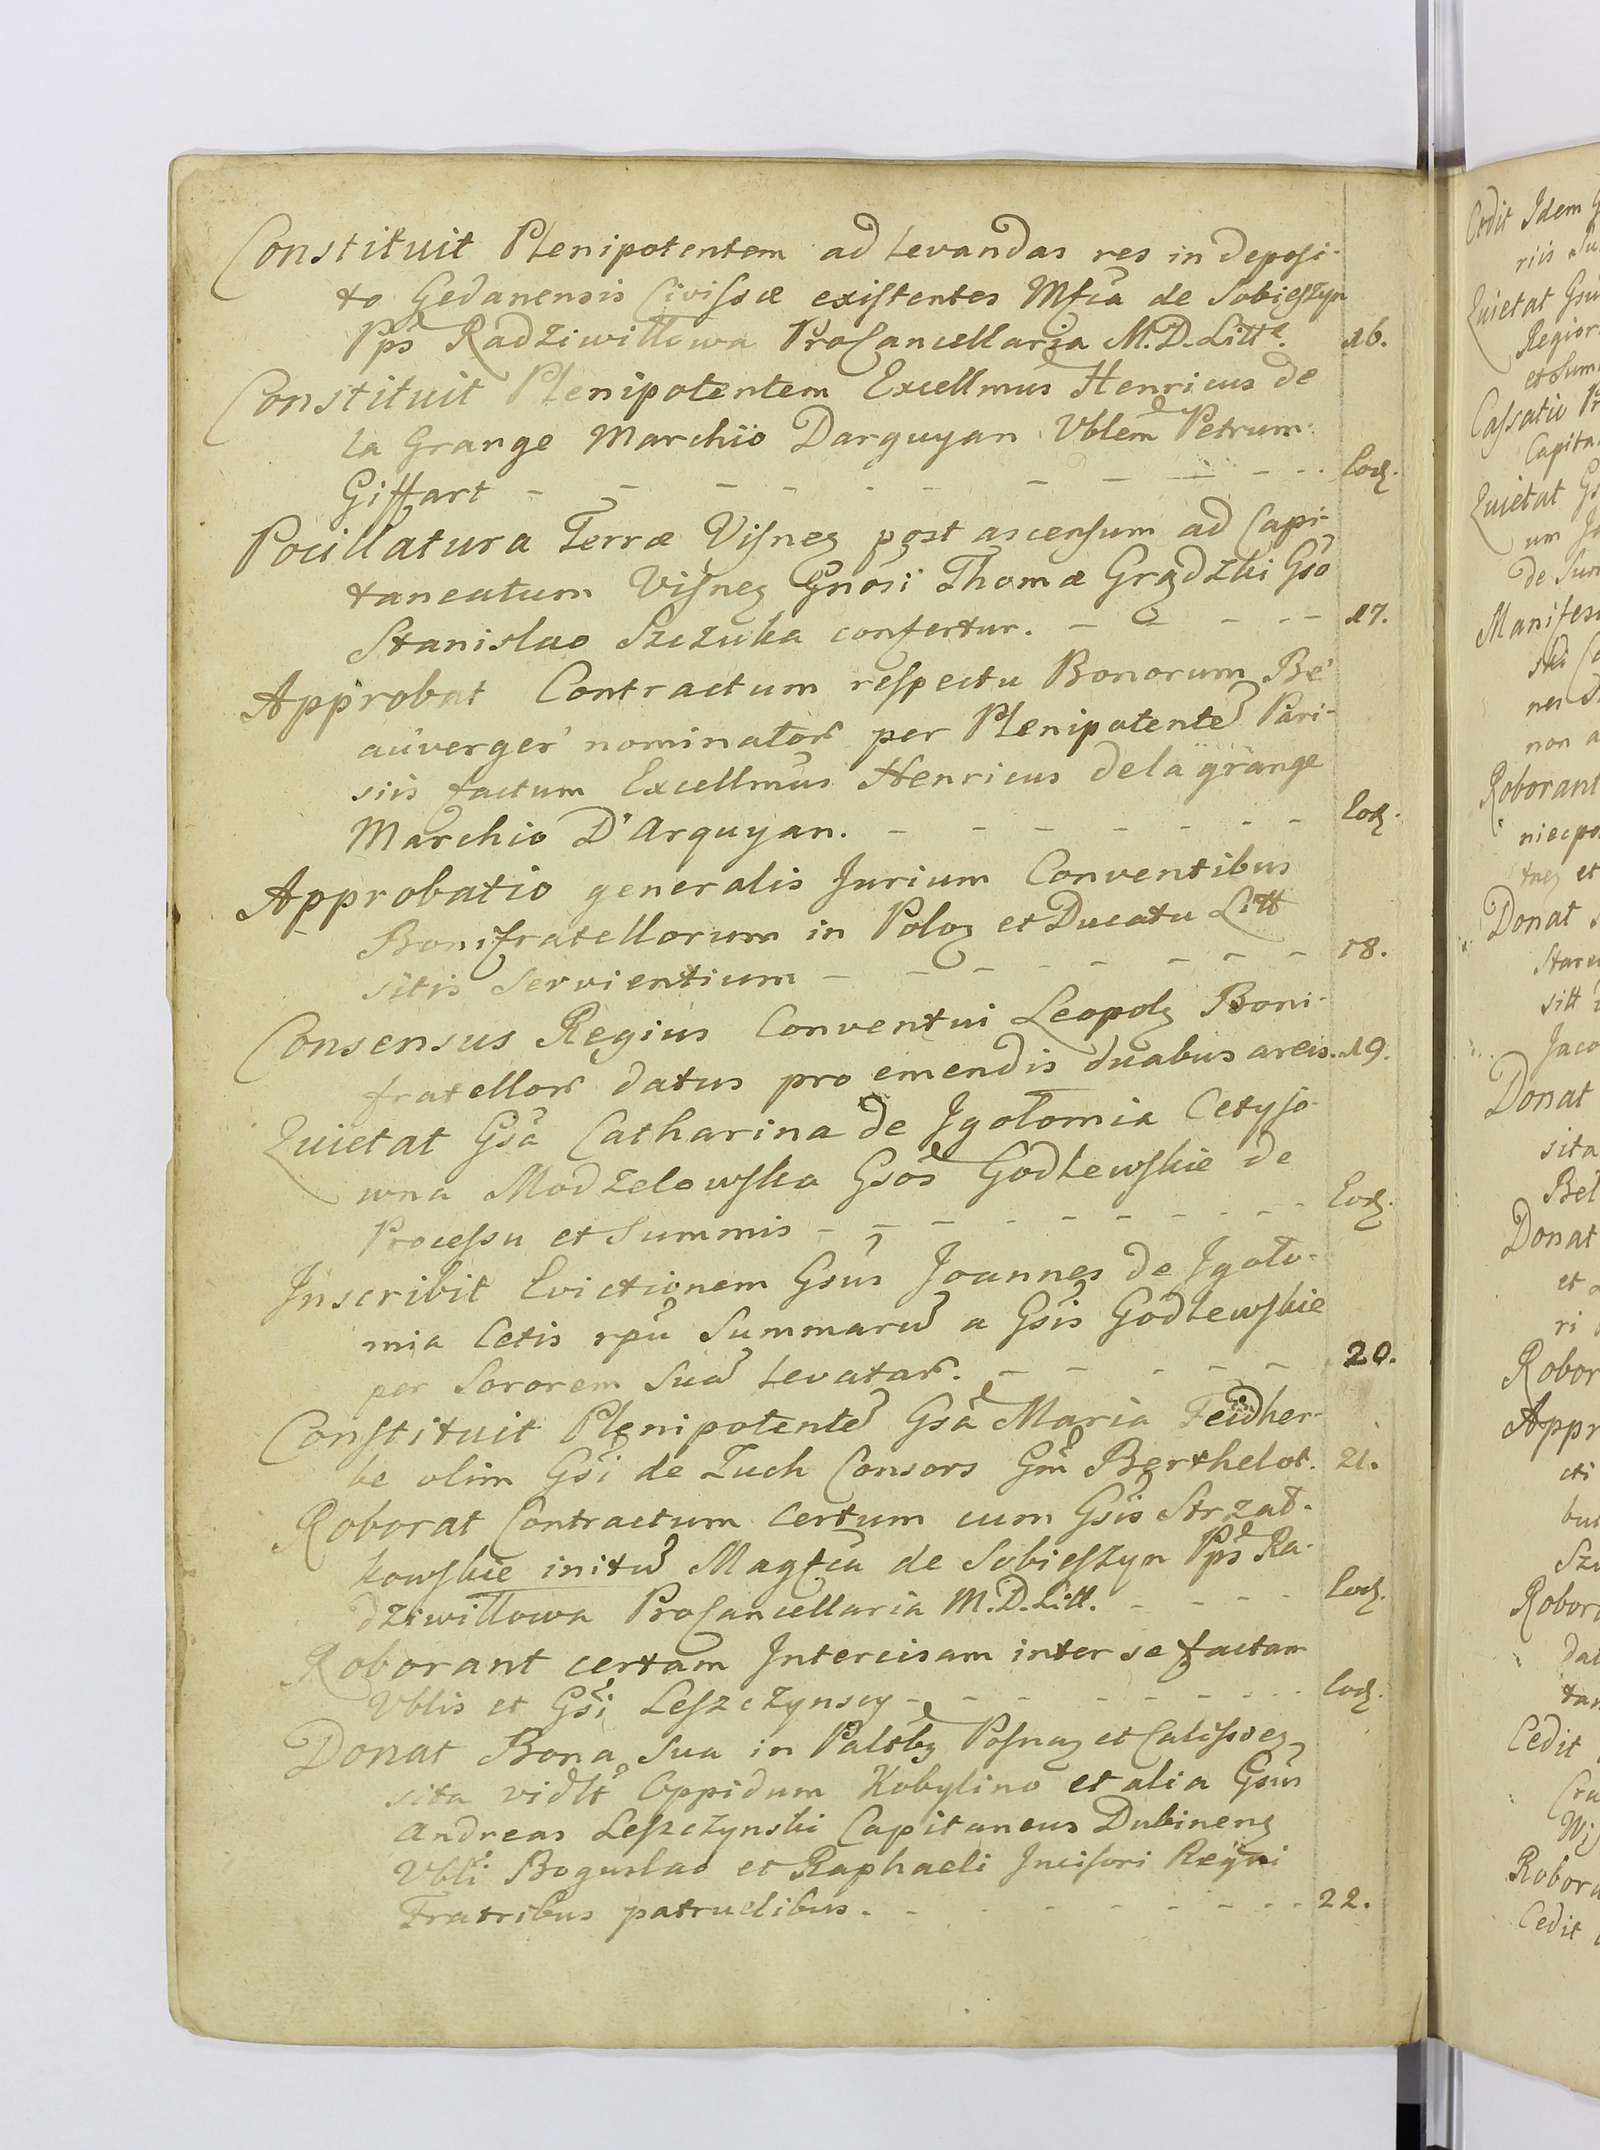 Constituit Plenipotentem ad levandas res in deposi-
to Gedanensis Civissæ existentes Mfca de Sobieszyn
Pps Radziwiłłowa ProCancellaria M.D.Litt. 16.
Constituit Plenipotentem Excellmus Henricus de
la Grange Marchio Darguyan Vblem Petrum
Giffart - - - - - - - - - Eod.
Pocillatura Terræ Visnen post ascensum ad Capi-
taneatum Visnen Gnosi Thomæ Grądzki Gso
Stanislao Szczuka confertur. - - - - - 17.
Approbat Contractum respectu Bonorum Be'
auverger' nominator per Plenipotente Pari-
siis factum Excellmus Henricus dela grange
Marchio D'Arquyan. - - - - - - - - Eod.
Approbatio generalis Jurium Conventibus
Bonifratellorum in Polon et Ducatu Litt
sitis Servientium - - - - - - - - 18.
Consensus Regius Conventui Leopoln Boni-
fratellor datus pro emendis duabus areis. 19.
Quietat Gsa Catharina de Jgołomia Cetyso
wna Modzelowska Gsos Godlewskie de
Processu et Summis - - - - - - - - - Eod.
Inscribit Evictionem Gsus Joannes de Jgoło-
mia Cetis rpu Summaru a Gsis Godlewskie
per Sororem Sua levatar. - - - - - 20.
Constituit Plenipotente Gsa Maria Feidher-
be olim Gsi de Zuch Consors Gm Berthelot. 21.
Roborat Contractum certum cum Gsis Strzał-
kowskie initu Magfca de Sobieszyn Pps Ra-
dziwiłłowa ProCancellaria M.D.Litt. - - - - Eod.
Roborant certam Intercisam inter se factam
Vblis et Gsi Leszczynscy - - - - - - - - Eod.
Donat Bona Sua in Paltbg Posnan et Calissien
sita vidlt Oppidum Kobylino et alia Gsus
Andreas Leszczynski Capitaneus Dubinen
Vbli Boguslao et Raphaeli Incisori Regni
Fratribus patruelibus. - - - - - - - - 22.
Cedit Idem
riis
Quietat
Regior
Cassatio
Capita
Quietat
um
de
Manifes
non a
Roborant
niecpo
et
Donat
Jaco
Donat
sita
Bel
Donat
et
ri
Robor
Appr
Robor
Cedit
Robora
Cedit